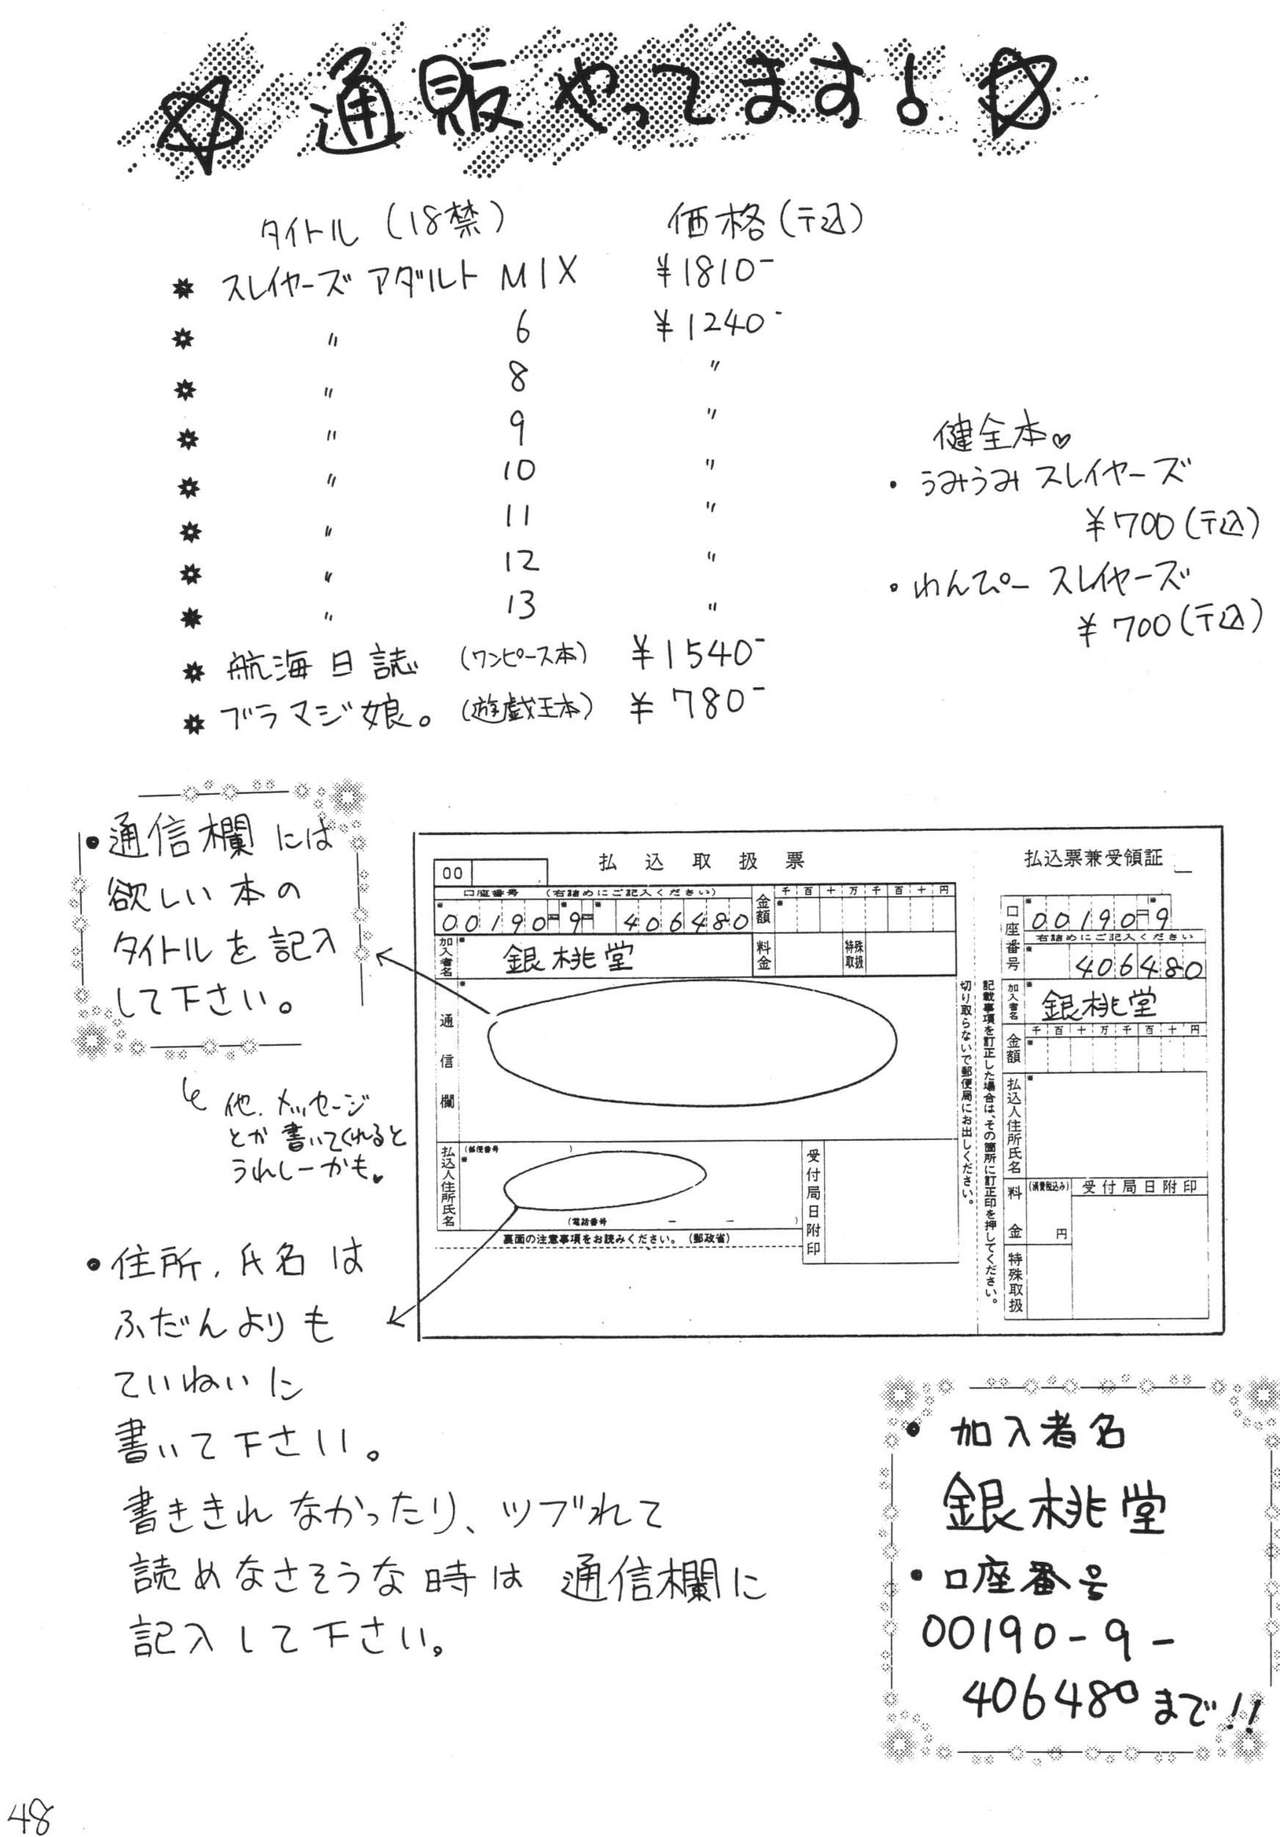 ☆ 通販やってます! ☆
タイトル (18禁) 価格(〒込)
スレイヤーズ アダルト MIX ¥1810-
〃 6 ¥1240-
〃 8 〃
〃 9 〃
〃 10 〃
〃 11 〃
〃 12 〃
〃 13 〃
航海日誌 (ワンピース本) ¥1540-
ブラマジ娘。(遊戯王本) ¥780-
健全本♡
・うみうみ スレイヤーズ
¥700(〒込)
・わんぴー スレイヤーズ
¥700(〒込)
・通信欄には
欲しい本の
タイトルを記入
して下さい。
他、メッセージ
とか書いてくれると
うれしーかも♥
・住所、氏名は
ふだんよりも
ていねいに
書いて下さい。
書ききれなかったり、ツブれて
読めなさそうな時は 通信欄に
記入して下さい。
00
払込取扱票
口座番号 (右詰めにご記入ください)
00190 9 406480
金額
千百十万千百十円
加入者名
銀桃堂
料金
特殊取扱
通信欄
払込人住所氏名
(郵便番号 )
(電話番号 ー ー )
裏面の注意事項をお読みください。(郵政省)
受付局日附印
切り取らないで郵便局にお出しください。
記載事項を訂正した場合は、その箇所に訂正印を押してください。
払込票兼受領証
口座番号
00190 9
右詰めにご記入ください
406480
加入者名
銀桃堂
金額
千百十万千百十円
払込人住所氏名
料金
(消費税込み)
円
受付局日附印
特殊取扱
・加入者名
銀桃堂
・口座番号
00190-9-
406480まで!!
48